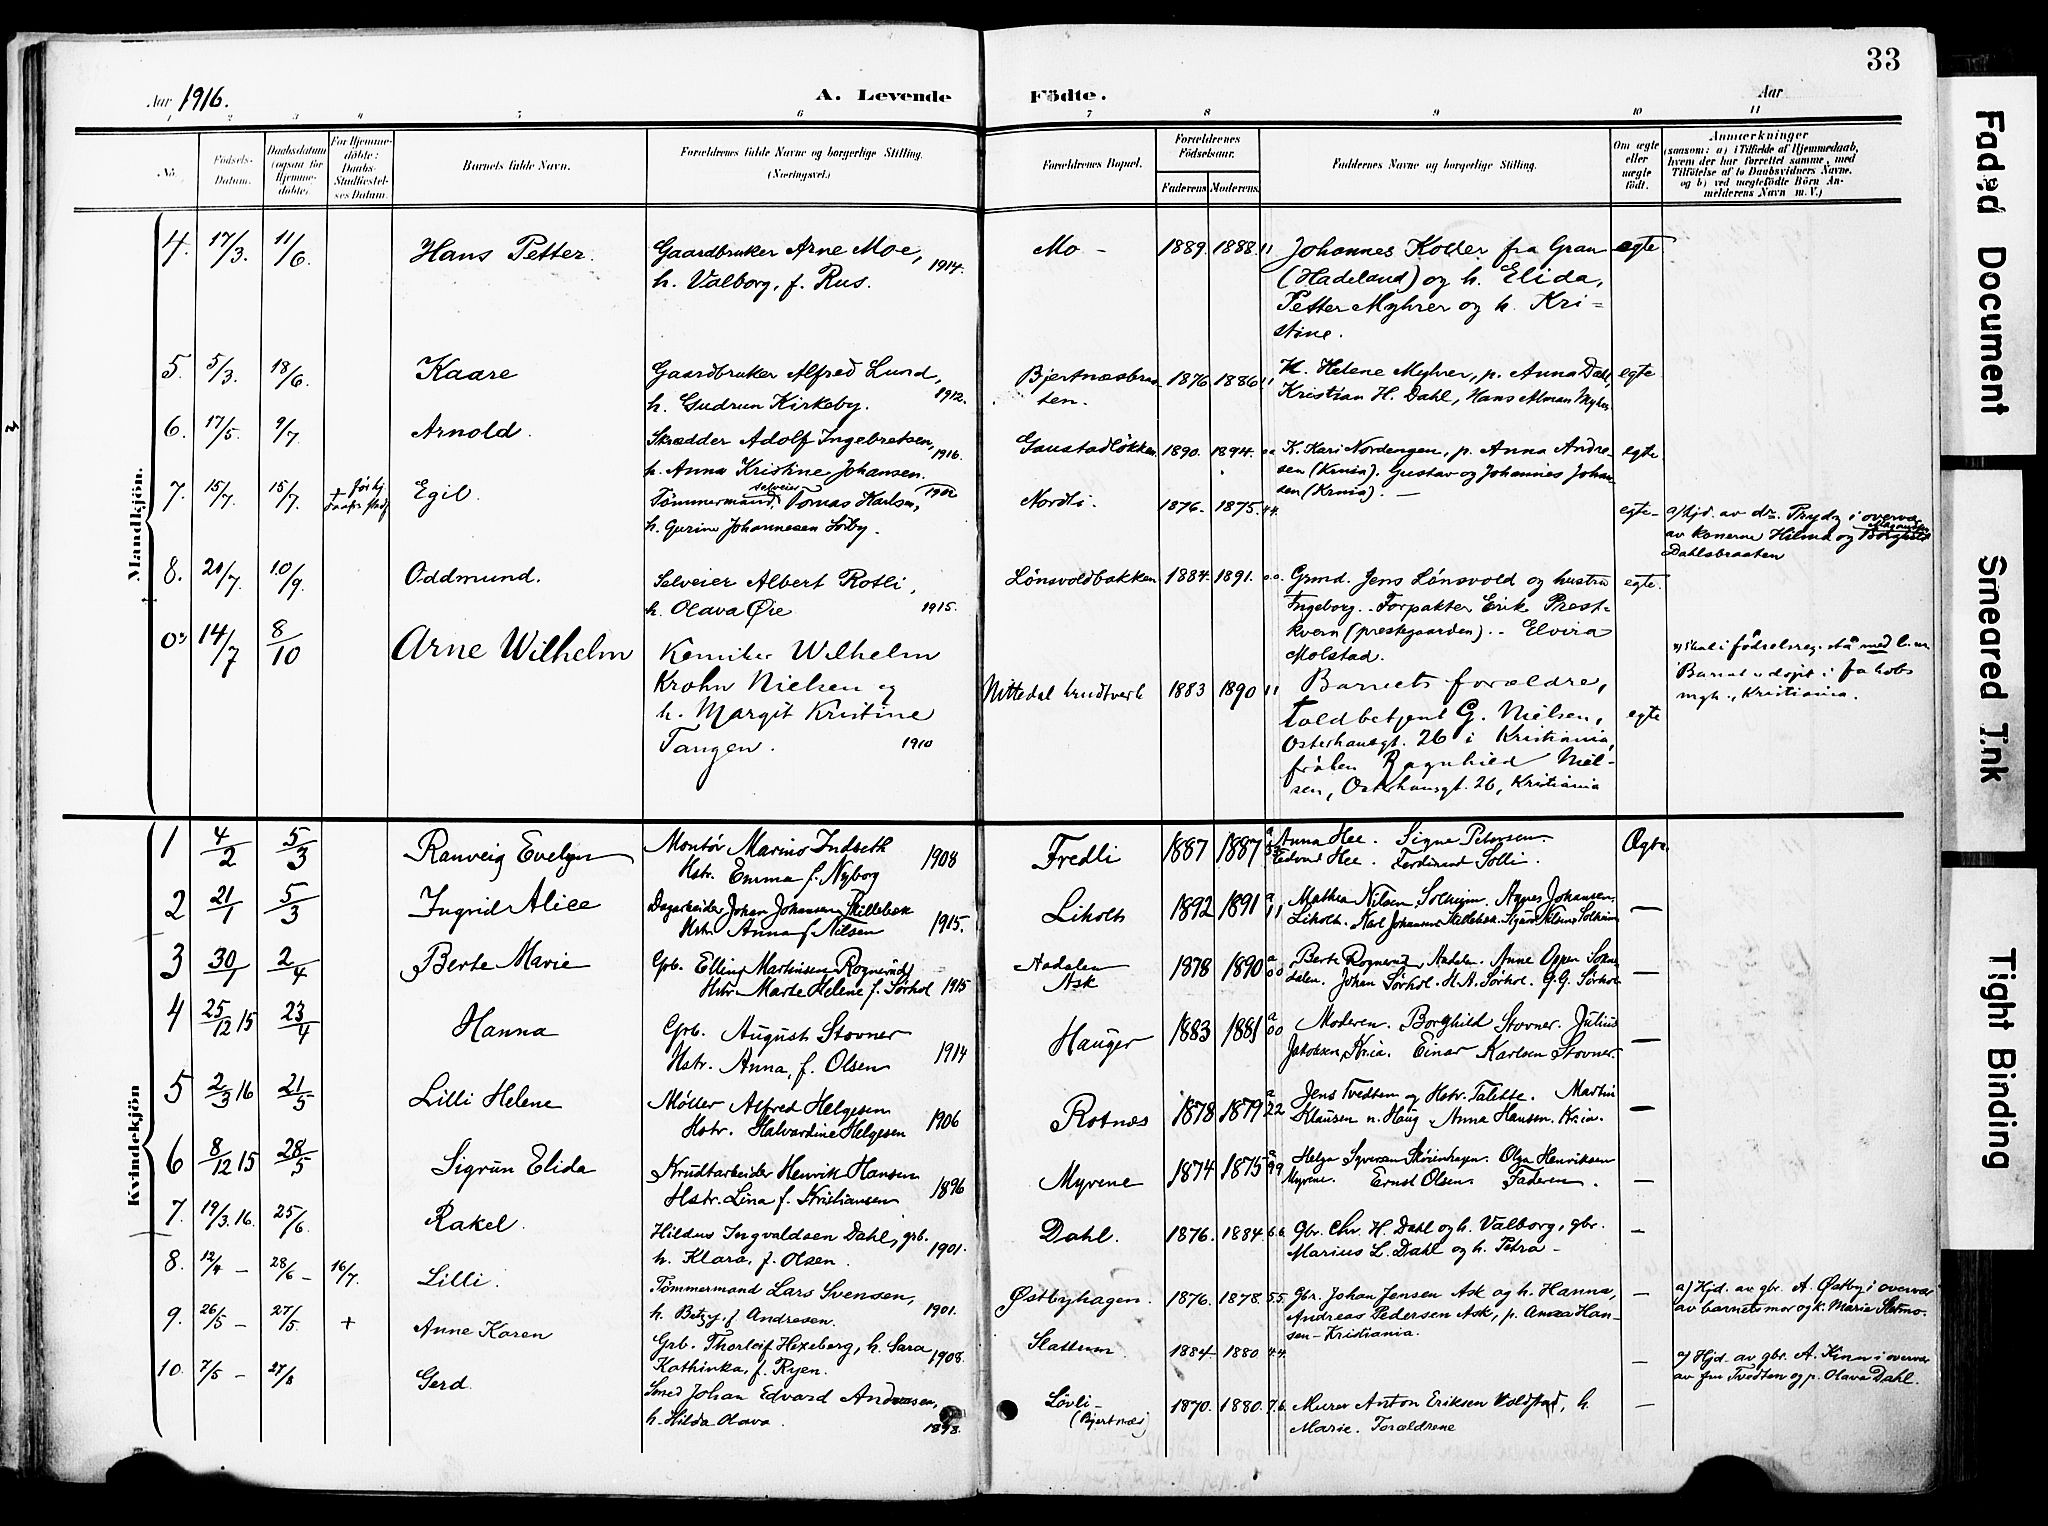 33
Aar 1916.
A. Levende Födte.
Aar
1 2 3 4 5 6 7 8 9 10 11
No.
Födsels-Datum.
Daabsdatum (ogsaa for Hjemme-döbte)
For Hjemme-döbte: Daabs-Stadfæstel-ses Datum.
Barnets fulde Navn.
Forældrenes fulde Navne og borgerlige Stilling. (Næringsvei.)
Forældrenes Bopæl.
Forældrenes Födselsaar.
Faderens. Moderens.
Faddernes Navne og borgerlige Stilling.
Om ægte eller uægte födt.
Anmærkninger
(saasom: a) i Tilfælde af Hjemmedaab, hvem der har forrettet samme, med Tilföielse af to Daabsvidners Navne, og b) ved uægtefödte Börn An-melderens Navn m. V.)
Mandkjön.
4. 17/3. 11/6. Hans Petter. Gaardbruker Arne Moe, 1914. Mo - 1889. 1888. 11 Johannes Koller fra Gran egte
h. Valborg, f. Rus. (Hadeland) og h. Elida,
Petter Myhrer og h. Kri=
stine.
5. 5/3. 18/6. Kaare Gaardbruker Alfred Lund, 1912. Bjertnæsbraa 1876 1886 11 K. Helene Myhrer, p. Anna Dahl, egte
h. Gudrun Kirkeby. ten. Kristian H. Dahl, Hans Alman Myhrer
6. 17/5. 9/7. Arnold. Skrædder Adolf Ingebretsen, 1916. Gaustadløkken 1890. 1894. K. Kari Nordengen, p. Anna Andre egte
h. Anna Kristine Johansen. sen (Krnia). Gustav og Johannes Johan
sen (Krnia). —
7. 15/7. 15/7. + Egil. Tømmermand, selveier Tomas Karlsen, 1902 Nordli 1876. 1875. 44. egte- a) hjd. av dr. Pryds i overvær
h. Gurine Johannesen Sörby. av konerne Hilma og Borghild
Dahlsbraaten
8. 21/7. 10/9. Oddmund. Selveier Albert Rotli, Lönsvoldbakken 1884. 1891. 00. Grmd. Jens Lönsvold og hustru egte.
h. Olava Øie 1915. Ingeborg. Forpakter Erik Prest-
kvern (prestegaarden). - Elvira
Molstad.
14/7 8/10 Arne Wilhelm Kemiker Wilhelm
Krohn Nielsen og Nittedal krudtverk 1883 1890 11 Barnets forældre, egte
h. Margit Kristine toldbetjent G. Nielsen,
Tangen. 1910 Osterhausgt. 26 i Kristiania,
frøken Ragnhild Niel-
sen, Osterhausgt. 26, Kristiania
skal i födselsreg. stå med
Barnet er döpt i Jakobs
mgh., Kristiania.
Kvindekjön
1 4/2 5/3 Ranveig Evelyn Montör Marino Indseth 1908 Fredli 1887 1887 a 55 Anna Hee. Signe Petersen. Ægte
Hstr. Emma f. Nyborg Edvard Hee. Ferdinand Solli.
2 21/1 5/3 Ingrid Alice Dagarbeider Johan Johansen Skillebæk 1915. Liholt 1892 1891 a 11 Mathea Nilsen Solheim. Agnes Johansen —
Hstr. Anna f. Nilsen Liholt. Karl Johansen Skillebæk. Sigurd Nilsen Solheim
3 30/1 2/4 Berte Marie Grb. Elling Martinsen Rognerud 1915 Aadalen 1878 1890 a 00 Berte Rognerud, Aadalen. Anne Oppen Sokne —
Hstr. Marte Helene f. Sørhol Ask dalen. Johan Sørhol. H. A. Sørhol. G. G. Sørhol
4 25/12 15 23/4 Hanna Grb. August Stovner 1914 Hauger 1883 1881 a 00 Moderen. Borghild Stovner. Julius —
Hstr. Anna, f. Olsen Jakobsen, Kria. Einar Karlsen Stovner.
5 2/3 16 21/5 Lilli Helene Møller Alfred Helgesen 1906 Rotnæs 1878 1879 a 22 Jens Tvedten og Hstr. Talette. Martin —
Hstr. Halvardine Helgesen Klausen n. Haug. Anna Hansen. Kria.
6 8/12 15 28/5 Sigrun Elida Krudtarbeider Henrik Hansen 1896 Myrene 1874 1875 a 99 Helga Syversen. Olga Henriksen —
Hstr. Lina f. Kristiansen Myrene. Ernst Olsen Faderen.
7. 19/3. 16. 25/6. Rakel. Hildus Ingvaldsen Dahl, grb. 1901. Dahl. 1876. 1884. 66. Gbr. Chr. H. Dahl og h. Valborg, gbr. —
h. Klara, f. Olsen. Marius L. Dahl og h. Petra -
8. 12/4 - 28/6 - 16/7. Lilli. Tömmermand Lars Svensen, 1901. Østbyhagen. 1876. 1878. 55. Gbr. Johan Jensen Ask og h. Hanna, — a) Hjd. av gbr. A. Østby i overvær
h. Betzy, f. Andresen. Andreas Pedersen Ask, p. Anna Han- av barnets mor og k. Marie Slatmo.
sen - Kristiania.
9. 26/5 - 27/5. + Anne Karen Grb. Thorleif Hexeberg, h. Sara 1908. Slattum. 1884. 1880 44. — a) Hjd. av gbr. A. Kinn i overvær
Kathinka, f. Ryen. av fru Tvedten og p. Olava Dahl.
10. 7/5 - 27/8 Gerd. Smed Johan Edvard Andreasen, 1898. Løvli - 1870. 1880. 76. Murer Anton Eriksen Voldstad, h. —
h. Hilda Olava. (Bjertnæs) Marie. Forældrene
Faded Document
Smeared Ink
Tight Binding